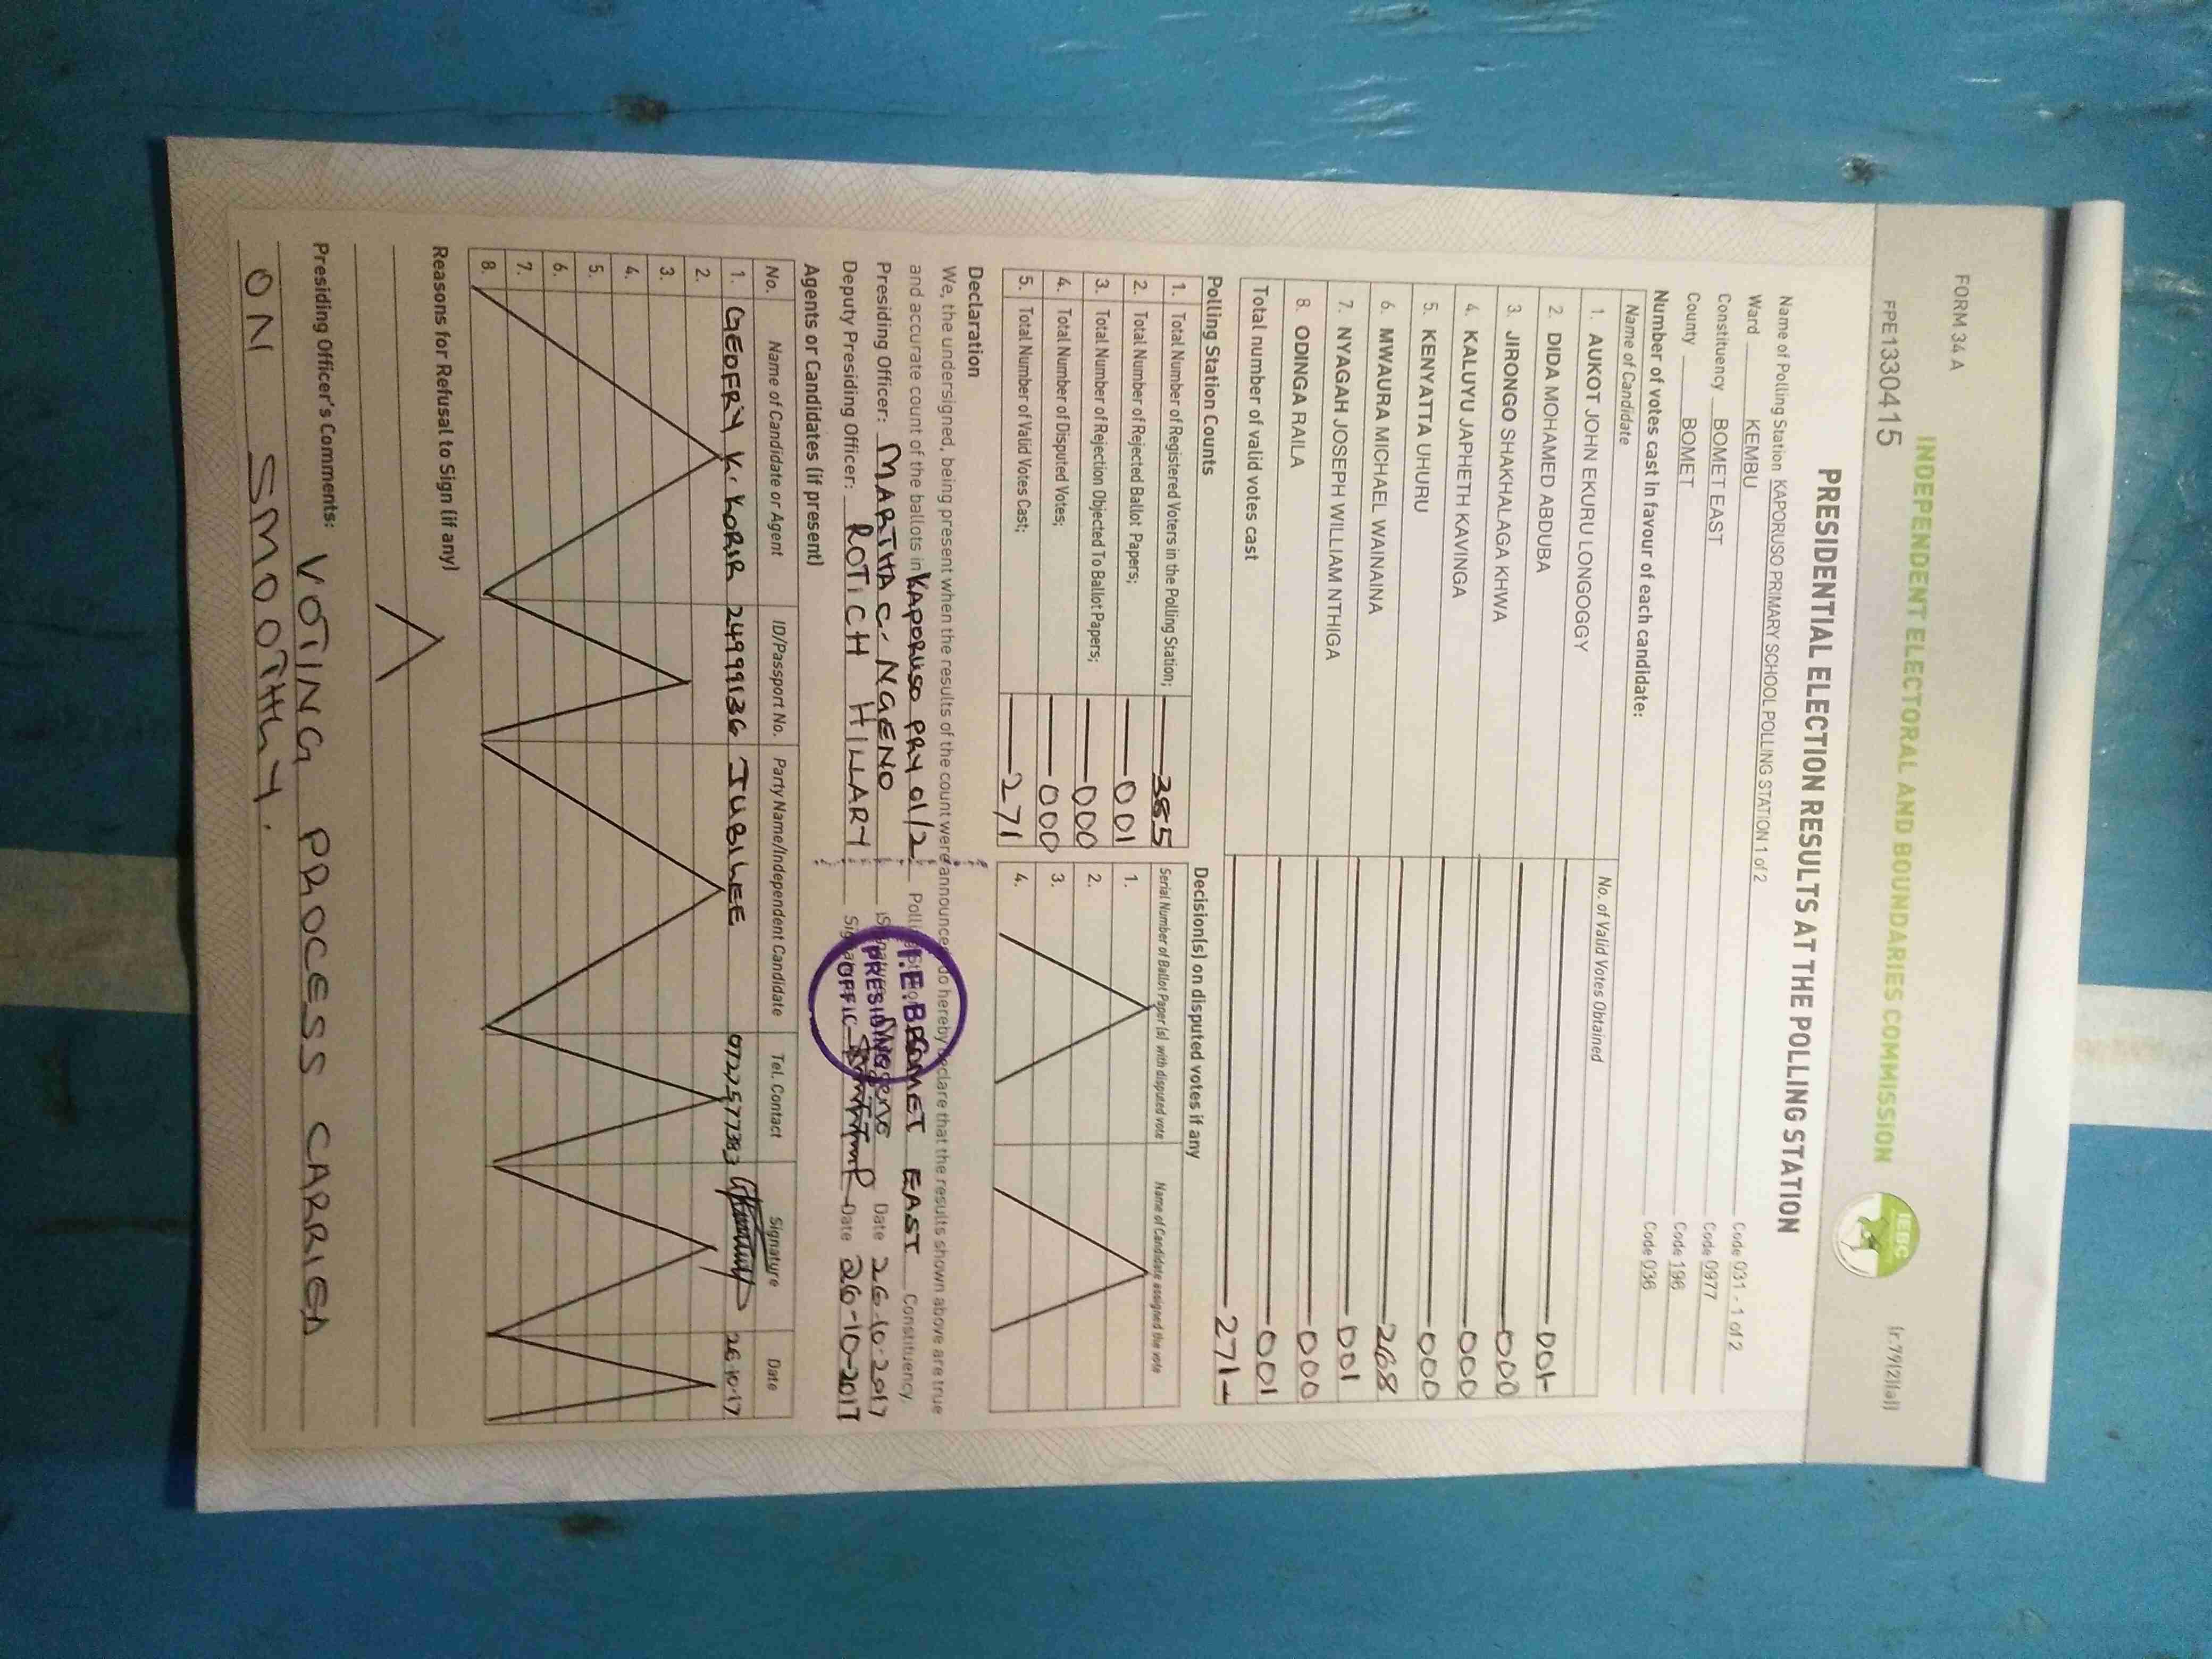 FORM 34 A
FPE1330415
(r.79(2)(a))
INDEPENDENT ELECTORAL AND BOUNDARIES COMMISSION
IEBC
PRESIDENTIAL ELECTION RESULTS AT THE POLLING STATION
Name of Polling Station KAPORUSO PRIMARY SCHOOL POLLING STATION 1 of 2 Code 031 - 1 of 2
Ward KEMBU Code 0977
Constituency BOMET EAST Code 196
County BOMET Code 036
Number of votes cast in favour of each candidate:
Name of Candidate No. of Valid Votes Obtained
1. AUKOT JOHN EKURU LONGOGGY 001
2. DIDA MOHAMED ABDUBA 000
3. JIRONGO SHAKHALAGA KHWA 000
4. KALUYU JAPHETH KAVINGA 000
5. KENYATTA UHURU 268
6. MWAURA MICHAEL WAINAINA 001
7. NYAGAH JOSEPH WILLIAM NTHIGA 000
8. ODINGA RAILA 001
Total number of valid votes cast 271
Polling Station Counts
1. Total Number of Registered Voters in the Polling Station; 385
2. Total Number of Rejected Ballot Papers; 001
3. Total Number of Rejection Objected To Ballot Papers; 000
4. Total Number of Disputed Votes; 000
5. Total Number of Valid Votes Cast; 271
Decision(s) on disputed votes if any
Serial Number of Ballot Paper(s) with disputed vote Name of Candidate assigned the vote
1.
2.
3.
4.
Declaration
We, the undersigned, being present when the results of the count were announced, do hereby declare that the results shown above are true
and accurate count of the ballots in KAPORUSO PRY 01/2 Polling Station BOMET EAST Constituency.
Presiding Officer: MARTHA C. NGENO Signature Date 26-10-2017
Deputy Presiding Officer: ROTICH HILLARY Signature Date 26-10-2017
I.E.B.C
PRESIDING
OFFIC
Agents or Candidates (if present)
No. Name of Candidate or Agent ID/Passport No. Party Name/Independent Candidate Tel. Contact Signature Date
1. GEOFRY K. KORIR 24999136 JUBILEE 0722577383 26-10-17
2.
3.
4.
5.
6.
7.
8.
Reasons for Refusal to Sign (if any)
Presiding Officer's Comments: VOTING PROCESS CARRIED
ON SMOOTHLY.